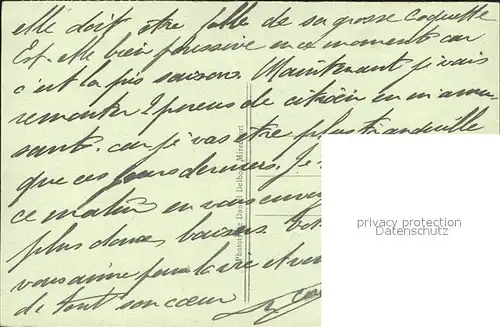 elle doit être folle de sa grosse coquette
Est elle bien poussive en ce moment car
c'est la pis saisons. Maintenant je vais
remonter 2 pneus de citröen en m'amu
sant. car je vas etre plus tranquille
que ces jours derniers. Je
ce matin en vous envoy
plus doux baisers Vot
vous aime pour la vie et
de tout son cœur
Phototypie Daniel Delboy, Mirecourt
privacy protection
Datenschutz